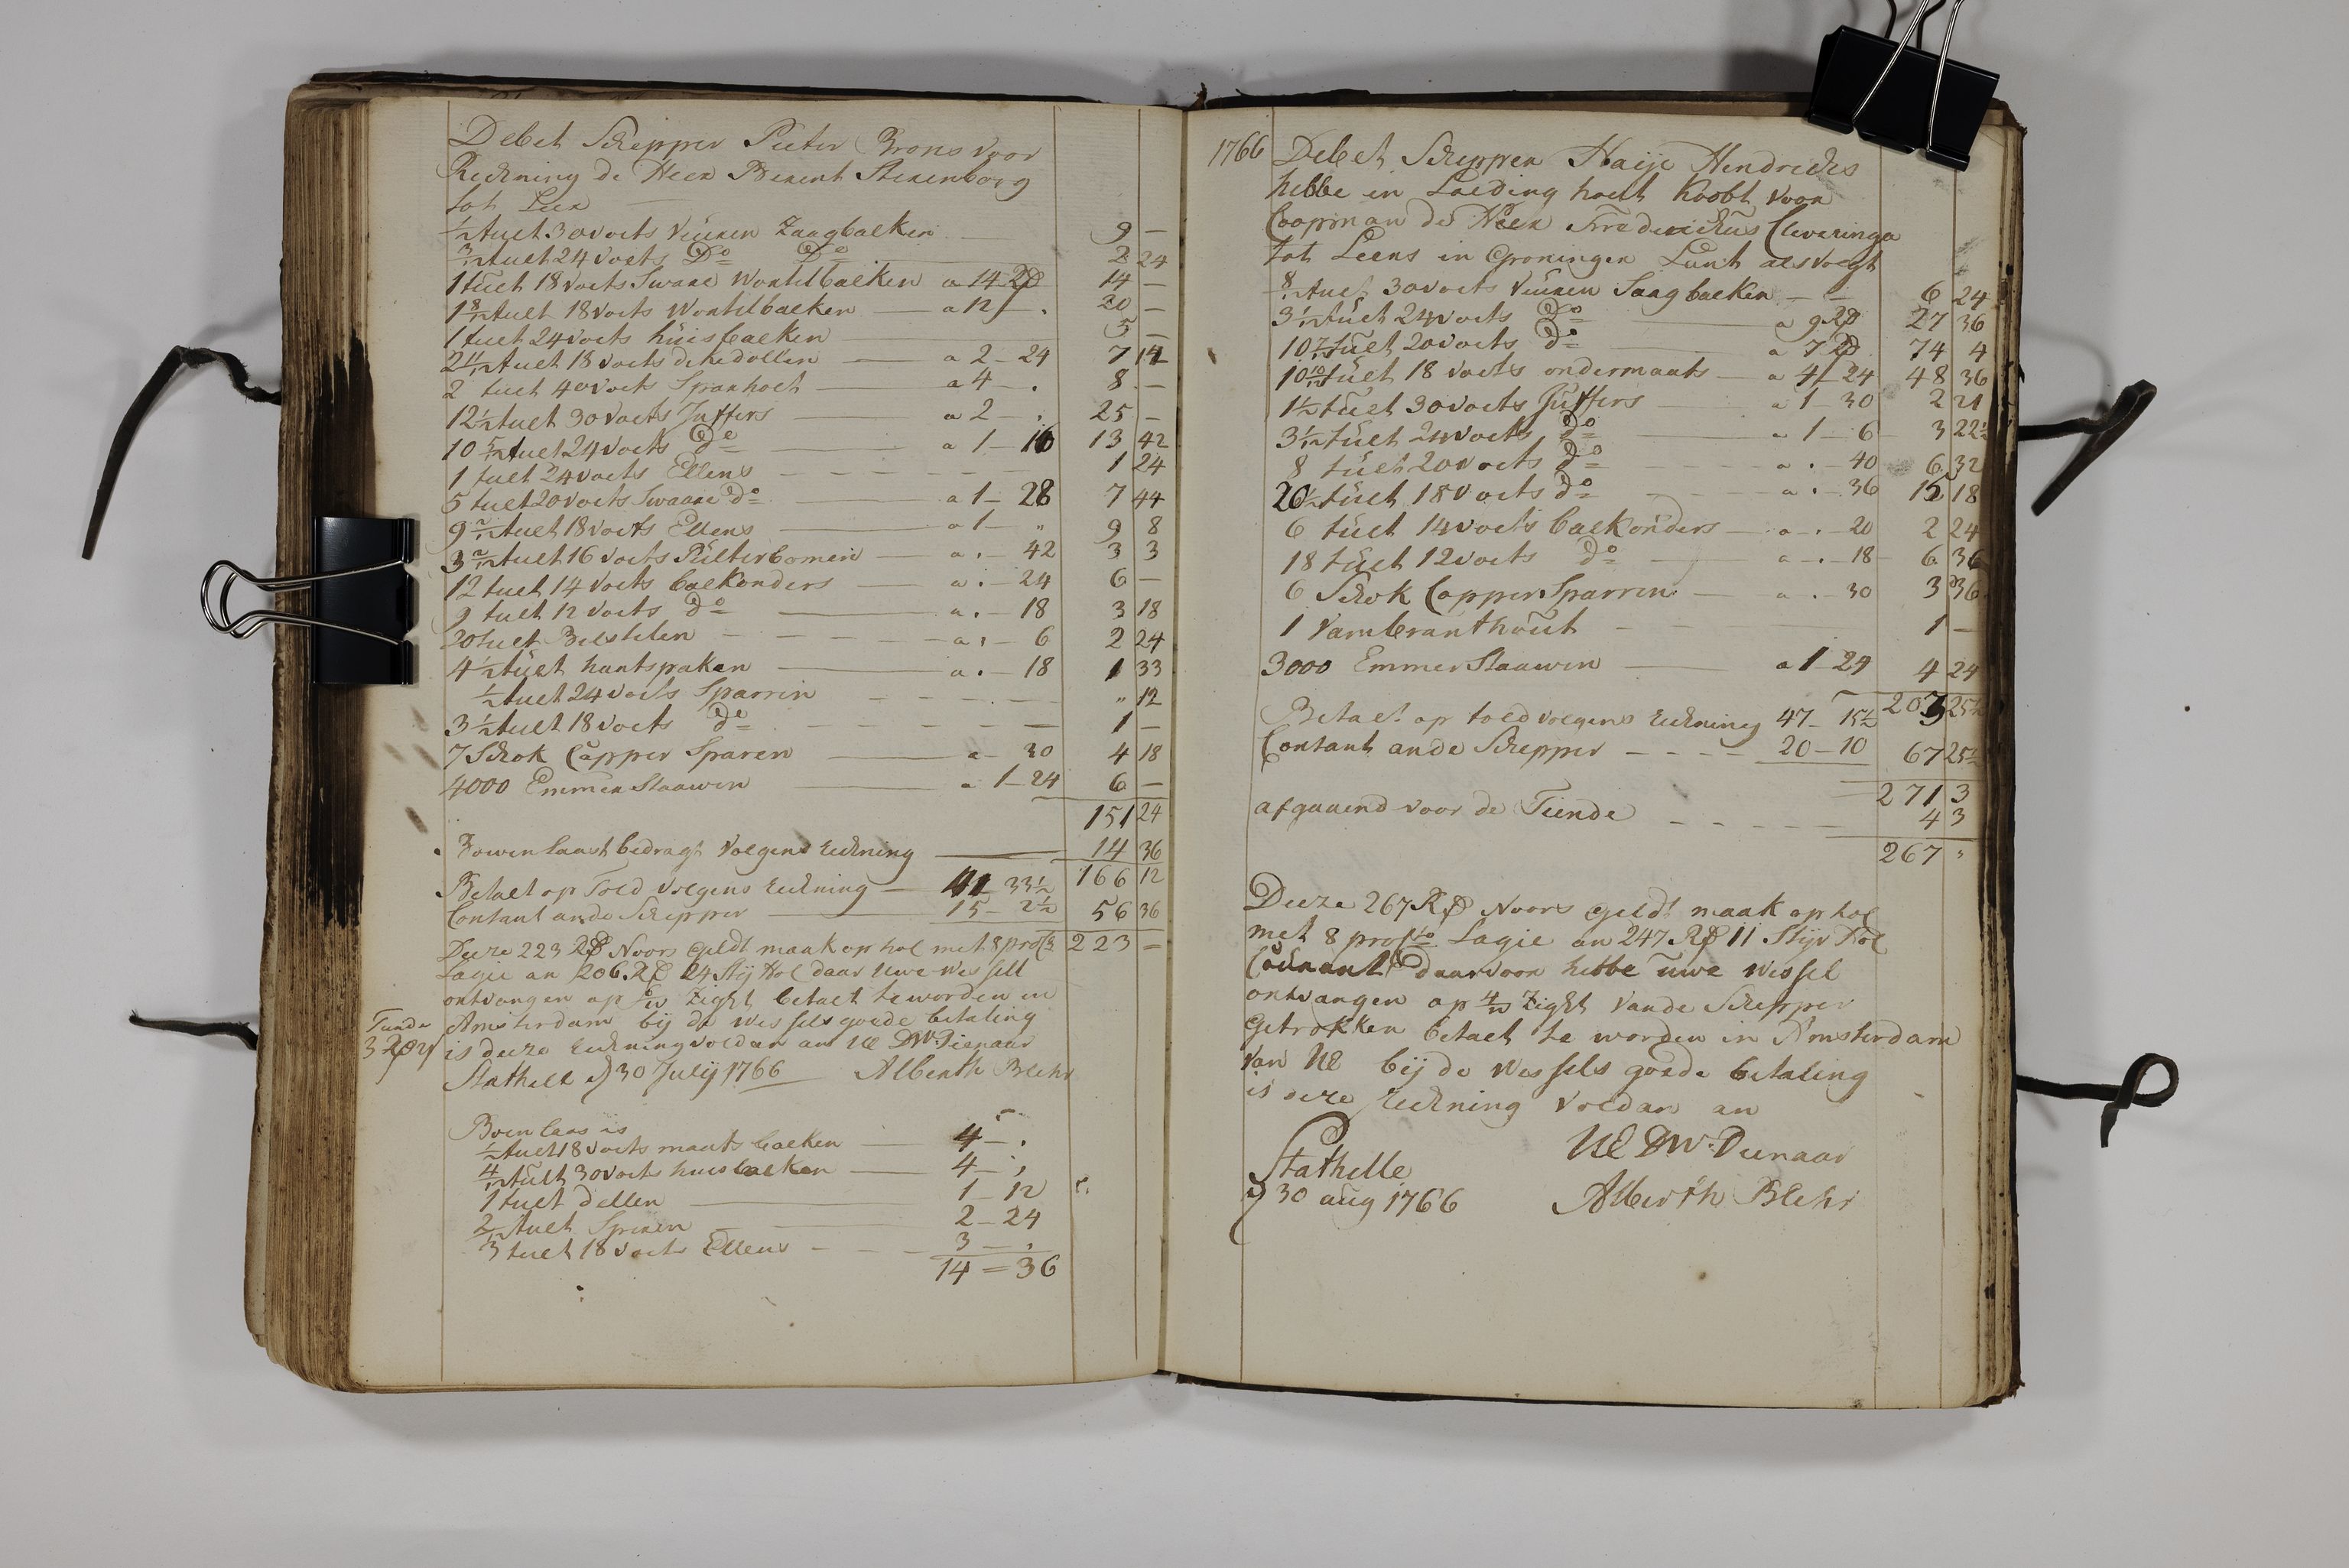 Debet Schepper Pieter Brons voor
Reckning de Heer Berent Sterenborg
tot Leer
1/2 tuelt 30 voets Vüuren Zaagbalken 9 —
3/12 tuelt 24 voets Do Do 2 24
1 tuelt 18 voets Sware Wontelbalken a 14 Rd 14 —
1 8/12 tuelt 18 voets Wontelbalken a 12 — . 20 —
1 tuelt 24 voets hüisbalken 5 —
2 11/12 tuelt 18 voets dekedollen a 2 — 24 7 14
2 tuelt 40 voets Sparhoet a 4 — . 8 —
12 1/2 tuelt 30 voets Juffers a 2 — . 25 —
10 5/12 tuelt 24 voets Do a 1 — 16 13 42
1 tuelt 24 voets Ellens 1 24
5 tuelt 20 voets Swaare Do a 1 — 28 7 44
9 2/12 tuelt 18 voets Ellens a 1 — " 9 8
3 2/12 tuelt 16 voets Pülterbomen a . — 42 3 3
12 tuelt 14 voets balkonders a . — 24 6 —
9 tuelt 12 voets Do a . — 18 3 18
20 tuelt Bielstelen a . 6 2 24
4 1/2 tüelt hantspaken a . — 18 1 33
1/2 tuelt 24 voets Sparrin " 12
3 1/2 tuelt 18 voets Do 1 —
7 Schok Copper Sparen a — 30 4 18
4000 Emmer Staawen a 1 — 24 6 —
151 24
Bowenlaast bedragt Volgens reckning 14 36
166 12
Betaelt op Told Volgens reckning 41 33 1/2
Contant ande Schepper 15 — 2 1/2 56 36
Deeze 223 Rd Noors geldt maak op hol met 8 procto 223 =
Lagie an 206. Rd 24 Stij Hol daar Uwe Wessell
ontvangen op 6/w Zight betaelt te worden in
Amsterdam bij de Wessels goede betaling
Tiende
3 Rd 24 is deeze reckning voldan an UE DW: Dienaar
Stathelle d 30 Julij 1766 Alberth Blehr
Bowenlaas is
1/2 tuelt 18 voets maats balken 4 — .
4/12 tüelt 30 voets huisbalken 4 — ,
1 tuelt dellen 1 — 12
2/12 tuelt Spieren 2 — 24
3 tuelt 18 voets Ellens 3 — ,
14 = 36
1766 Debet Schepper Haije Hendricks
hebbe in Laeding hoelt koobt voor
Coopman de Heer Fredericus Cleveringa
tot Leens in Groningen Lant als volgt
8/12 tuelt 30 voets Vüuren Saagbalken 6 24
3 1/12 tüelt 24 voets Do a 9 Rd 27 36
10 7/12 tüelt 20 voets do a 7 Rd 74 4
10 10/12 tüelt 18 voets ondermaats a 4 — 24 48 36
1 1/2 tüelt 30 voets Jüffers a 1 — 30 2 21
3 1/12 tüelt 24 voets Do a 1 — 6 3 22 1/2
8 tüelt 20 voets Do a . — 40 6 32
20 1/2 tüelt 18 voets do a . — 36 15 18
6 tüelt 14 voets balkonders a . — 20 2 24
18 tüelt 12 voets do a . — 18 6 36
6 Schok Copper Sparren a . — 30 3 36
1 Vam branthoüt 1 —
3000 Emmer Staawen a 1 24 4 24
203 25 1/2
Betaelt op told volgens reckning 47 — 15 1/2
Contant ande Schepper 20 — 10 67 25 1/2
271 3
afgaaend voor de Tiende 4 3
267 "
Deeze 267 Rd Noors geldt maak op hol
met 8 procto Lagie an 247 Rd 11 Stijv Hol
Coürant daarvoor hebbe uwe Wessel
ontvangen op 4/w Zight Vande Schepper
getrokken betaelt te worden in Amsterdam
Van UE bij de Wessels goede betaling
is deeze reckning Voldan an
UE DW. Dienaar
Stathelle
d 30 aüg 1766 Alberth Blehr